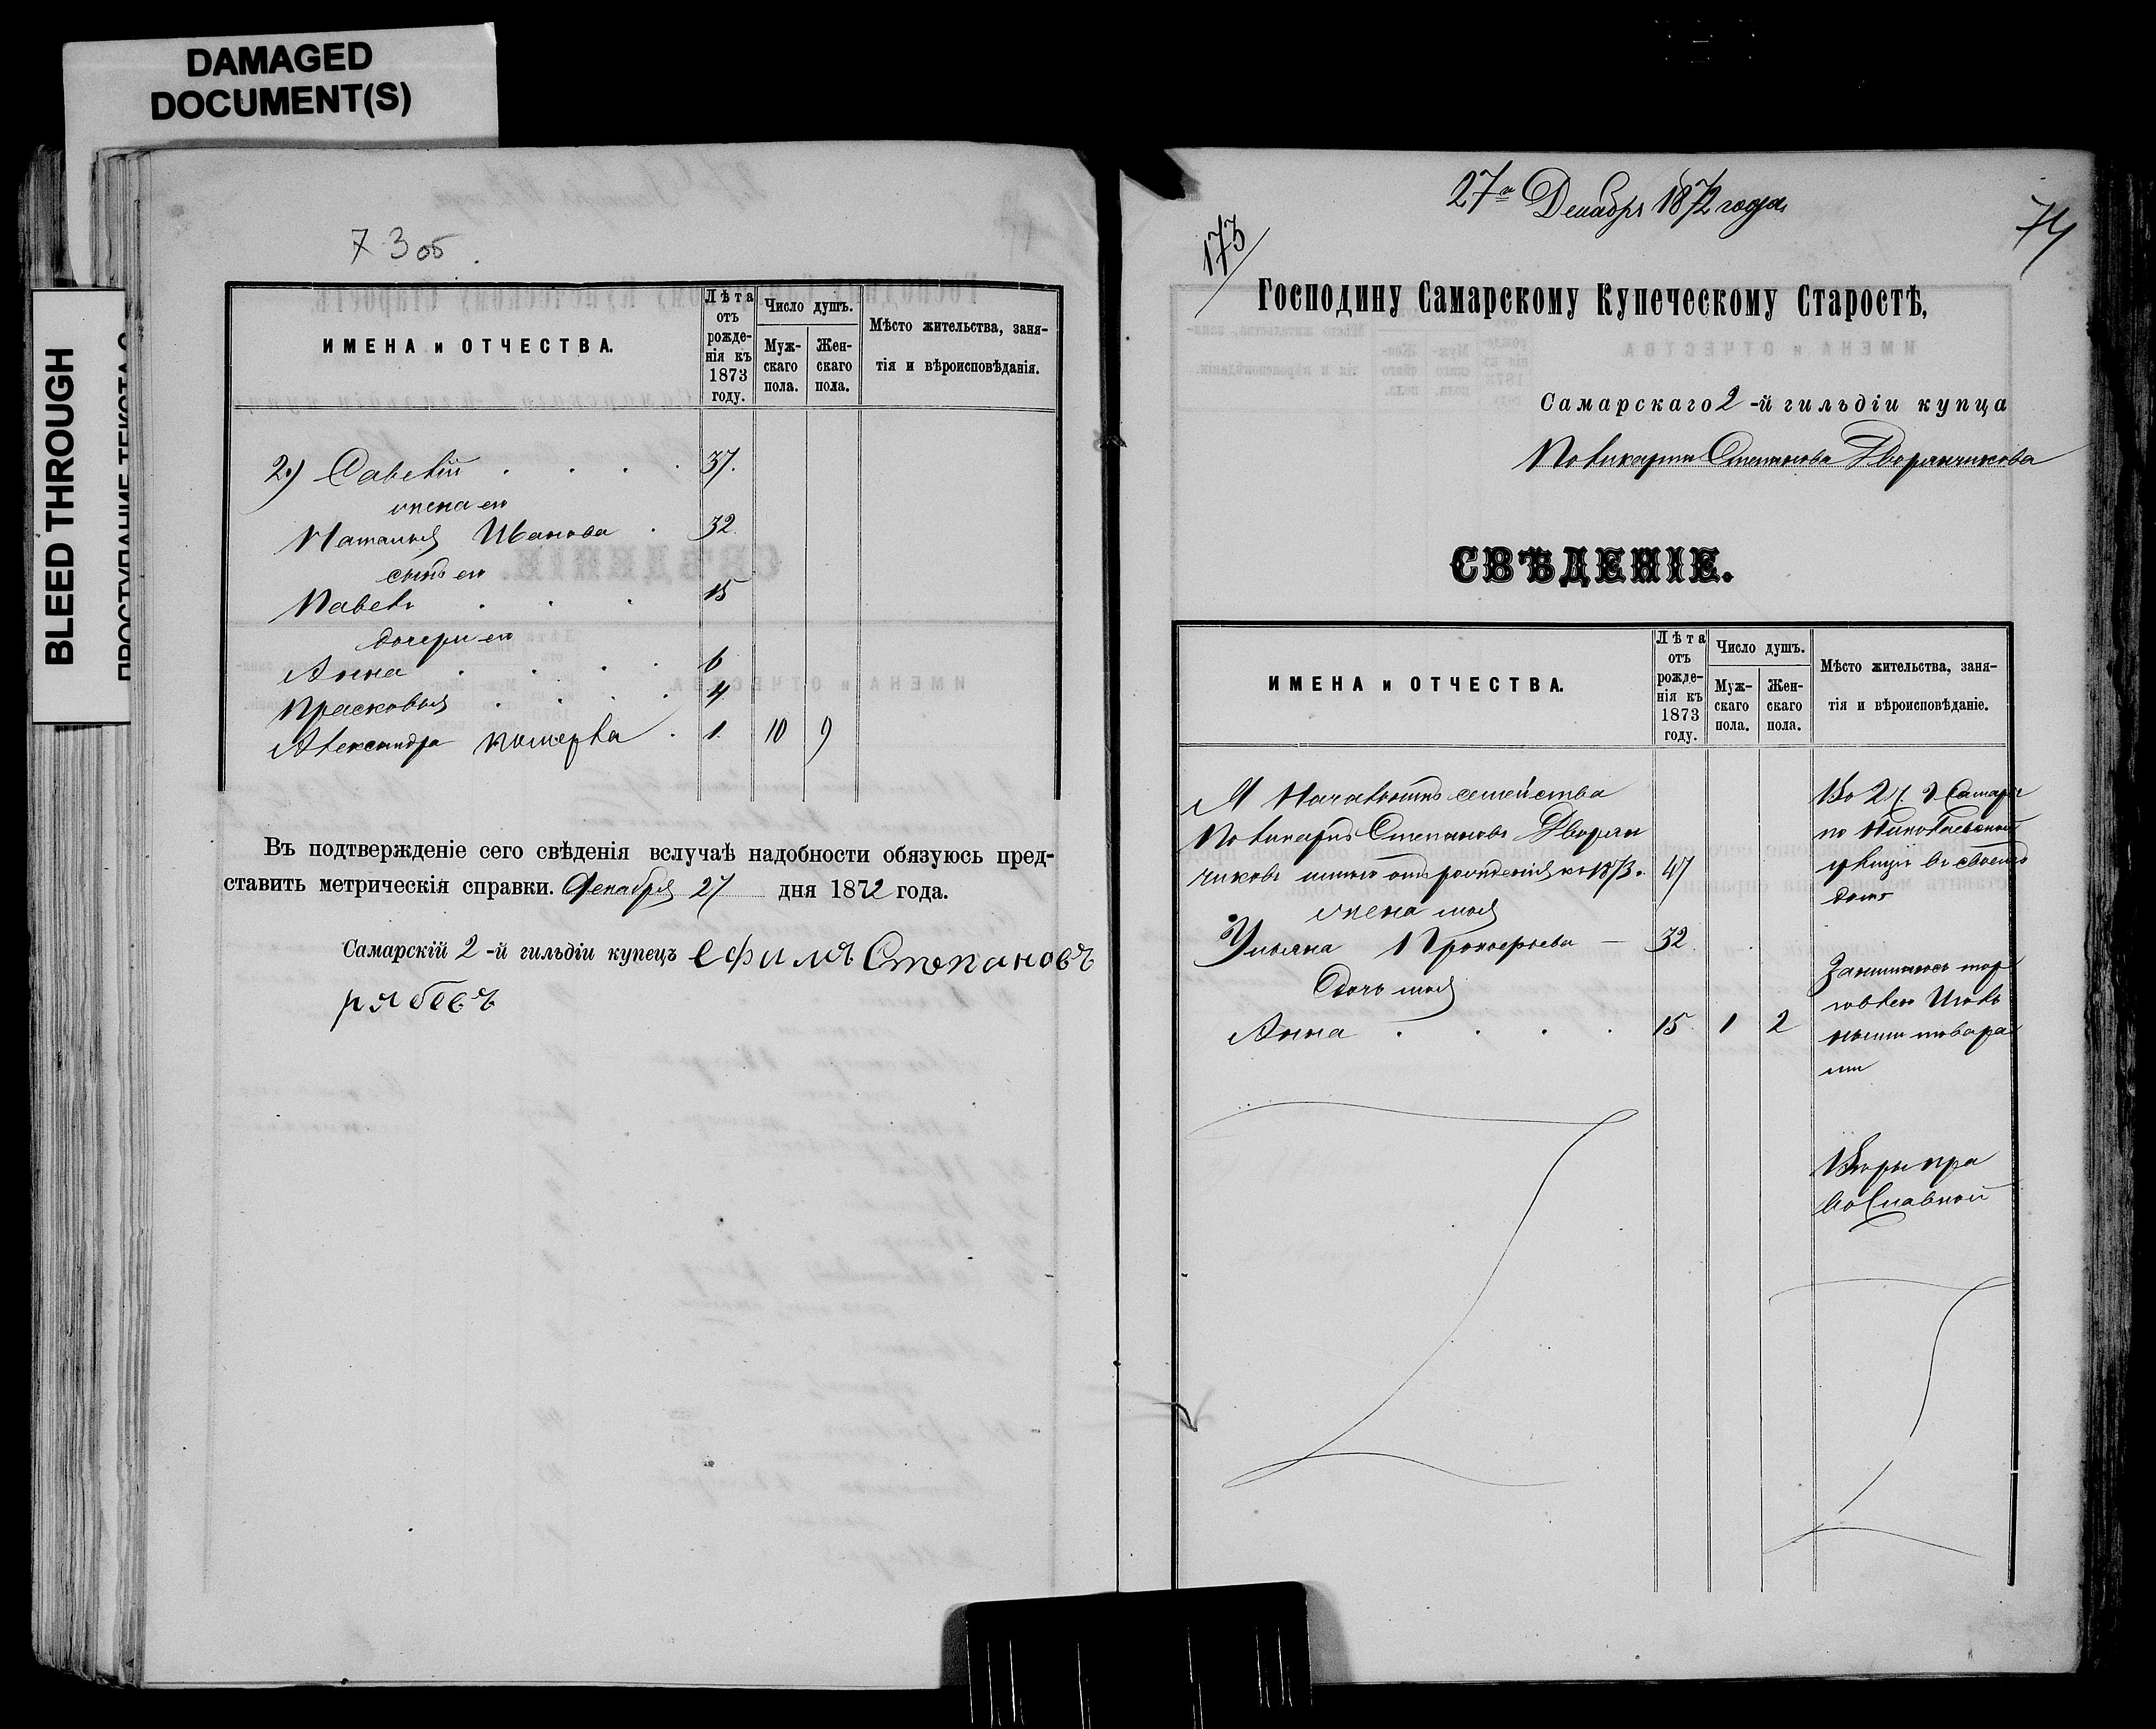 DAMAGED
DOCUMENT(S)
BLEED THROUGH
73 об.
ИМЕНА и ОТЧЕСТВА.
Лѣта отъ рожденія къ 1873 году.
Число душъ.
Мужскаго пола.
Женскаго пола.
Мѣсто жительства, занятія и вѣроисповѣданія.
2.) Савелій 37.
жена его
Наталья Иванова 32.
сынъ его
Павелъ 15
дочери его
Анна 6
Прасковья 4
Александра померла 1. 10 9
Въ подтвержденіе сего свѣденія вслучаѣ надобности обязуюсь пред-
ставить метрическія справки. Декабря 27 дня 1872 года.
Самарскій 2-й гильдіи купецъ ефимъ Степановъ
рябовъ
27го Декабря 1872 года
173
74
Господину Самарскому Купеческому Старостѣ,
Самарскаго 2-й гильдіи купца
Поликарпа Степанова Дворянчикова
СВѢДЕНІЕ.
ИМЕНА и ОТЧЕСТВА.
Лѣта отъ рожденія къ 1873 году.
Число душъ.
Мужскаго пола.
Женскаго пола.
Мѣсто жительства, занятія и вѣроисповѣданіе.
Я Начальникъ семейства
Поликарпъ Степановъ Дворян
чиковъ отъ рожденія къ 1873. 47
жена моя
Ульяна Прокофьева — 32
дочь моя
Анна 15 1 2
Во 2 ч. г Самары
по Николаевской
улицѣ въ своемъ
домѣ
Занимаюсь тор
говлею
товара
ми
Вѣры пра
вославной